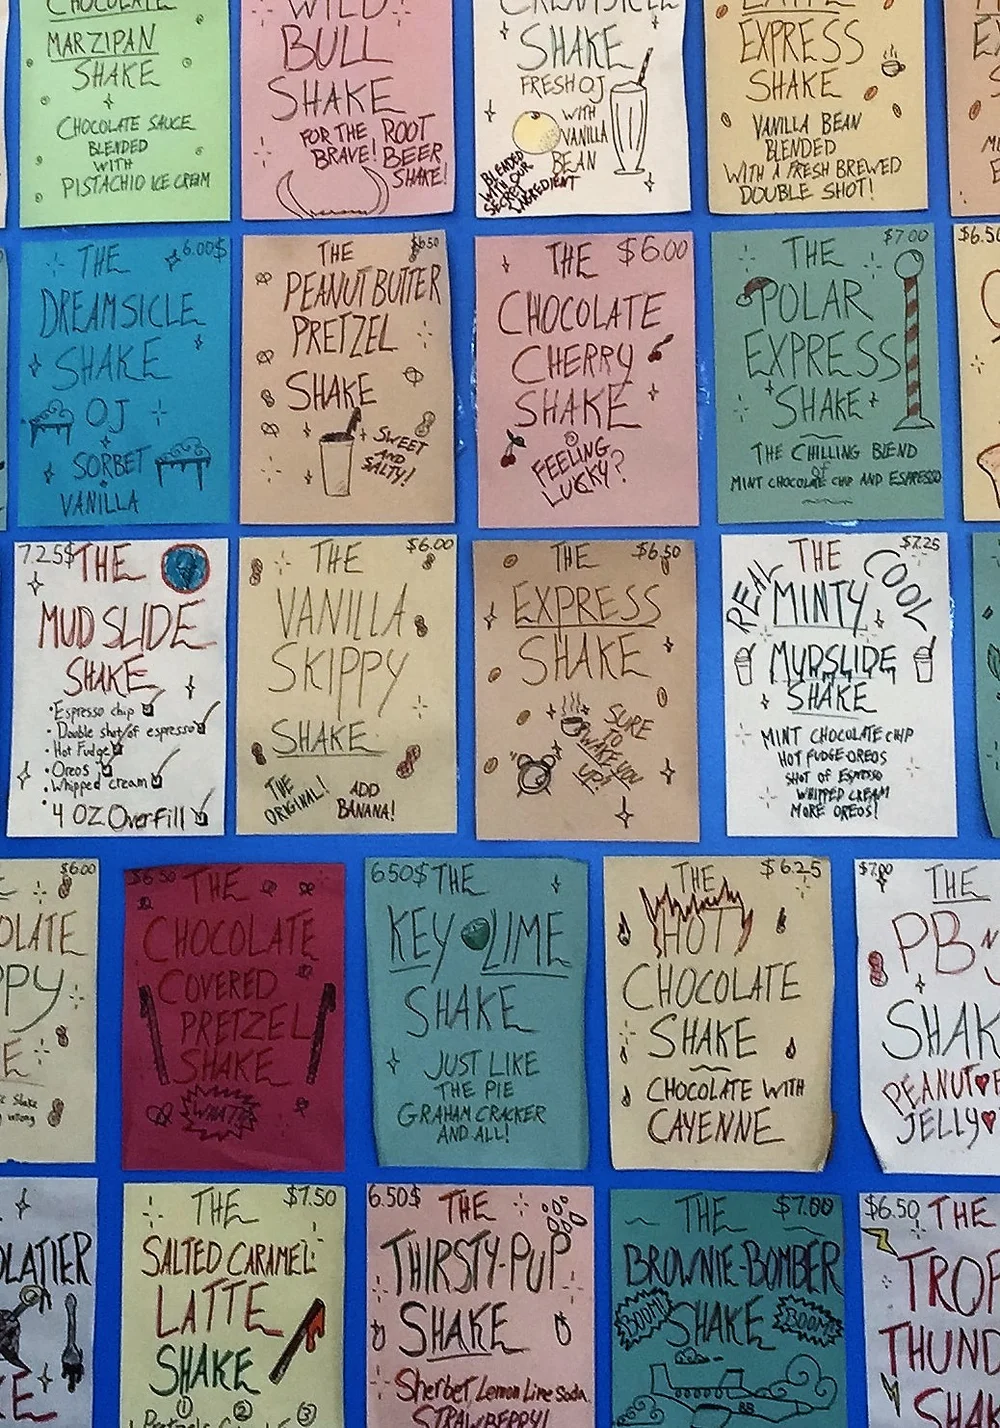 CHOCOLATE
MARZIPAN
SHAKE
CHOCOLATE SAUCE
BLENDED
WITH
PISTACHIO ICE CREAM
WILD!
BULL
SHAKE
FOR THE
BRAVE!
ROOT
BEER
SHAKE!
SHAKE
FRESH OJ
WITH
VANILLA
BEAN
BLENDED
WITH OUR
SECRET
INGREDIENT
EXPRESS
SHAKE
VANILLA BEAN
BLENDED
WITH A FRESH BREWED
DOUBLE SHOT!
THE 6.00$
DREAMSICLE
SHAKE
OJ
SORBET
VANILLA
THE $6.50
PEANUT BUTTER
PRETZEL
SHAKE
SWEET
AND
SALTY!
THE $6.00
CHOCOLATE
CHERRY
SHAKE
FEELING
LUCKY?
THE $7.00
POLAR
EXPRESS
SHAKE
THE CHILLING BLEND
OF
MINT CHOCOLATE CHIP AND ESPRESSO
$6.50
7.25$ THE
MUDSLIDE
SHAKE
• Espresso chip
• Double shot of espresso
• Hot Fudge
• Oreos
• Whipped cream
• 4 OZ Overfill
THE $6.00
VANILLA
SKIPPY
SHAKE
THE
ORIGINAL!
ADD
BANANA!
THE $6.50
EXPRESS
SHAKE
SURE
TO
WAKE YOU
UP!
THE $7.25
REAL
COOL
MINTY
MUDSLIDE
SHAKE
MINT CHOCOLATE CHIP
HOT FUDGE OREOS
SHOT OF ESPRESSO
WHIPPED CREAM
MORE OREOS!
$6.00
OLATE
PPY
E
Shake
wrong
$6.50 THE
CHOCOLATE
COVERED
PRETZEL
SHAKE
WHAT?
650$ THE
KEY LIME
SHAKE
JUST LIKE
THE PIE
GRAHAM CRACKER
AND ALL!
THE $6.25
HOT
CHOCOLATE
SHAKE
CHOCOLATE WITH
CAYENNE
$7.00
THE
PB
SHAK
PEANUT
JELLY
OLATIER
KE
THE $7.50
SALTED CARAMEL
LATTE
SHAKE
1 2 3
Pretzels
6.50$ THE
THIRSTY-PUP
SHAKE
Sherbet Lemon Lime Soda
STRAWBERRY!
THE $7.00
BROWNIE-BOMBER
BOOM!
SHAKE
BOOM!
88
$6.50 THE
TROP
THUND
SHAK